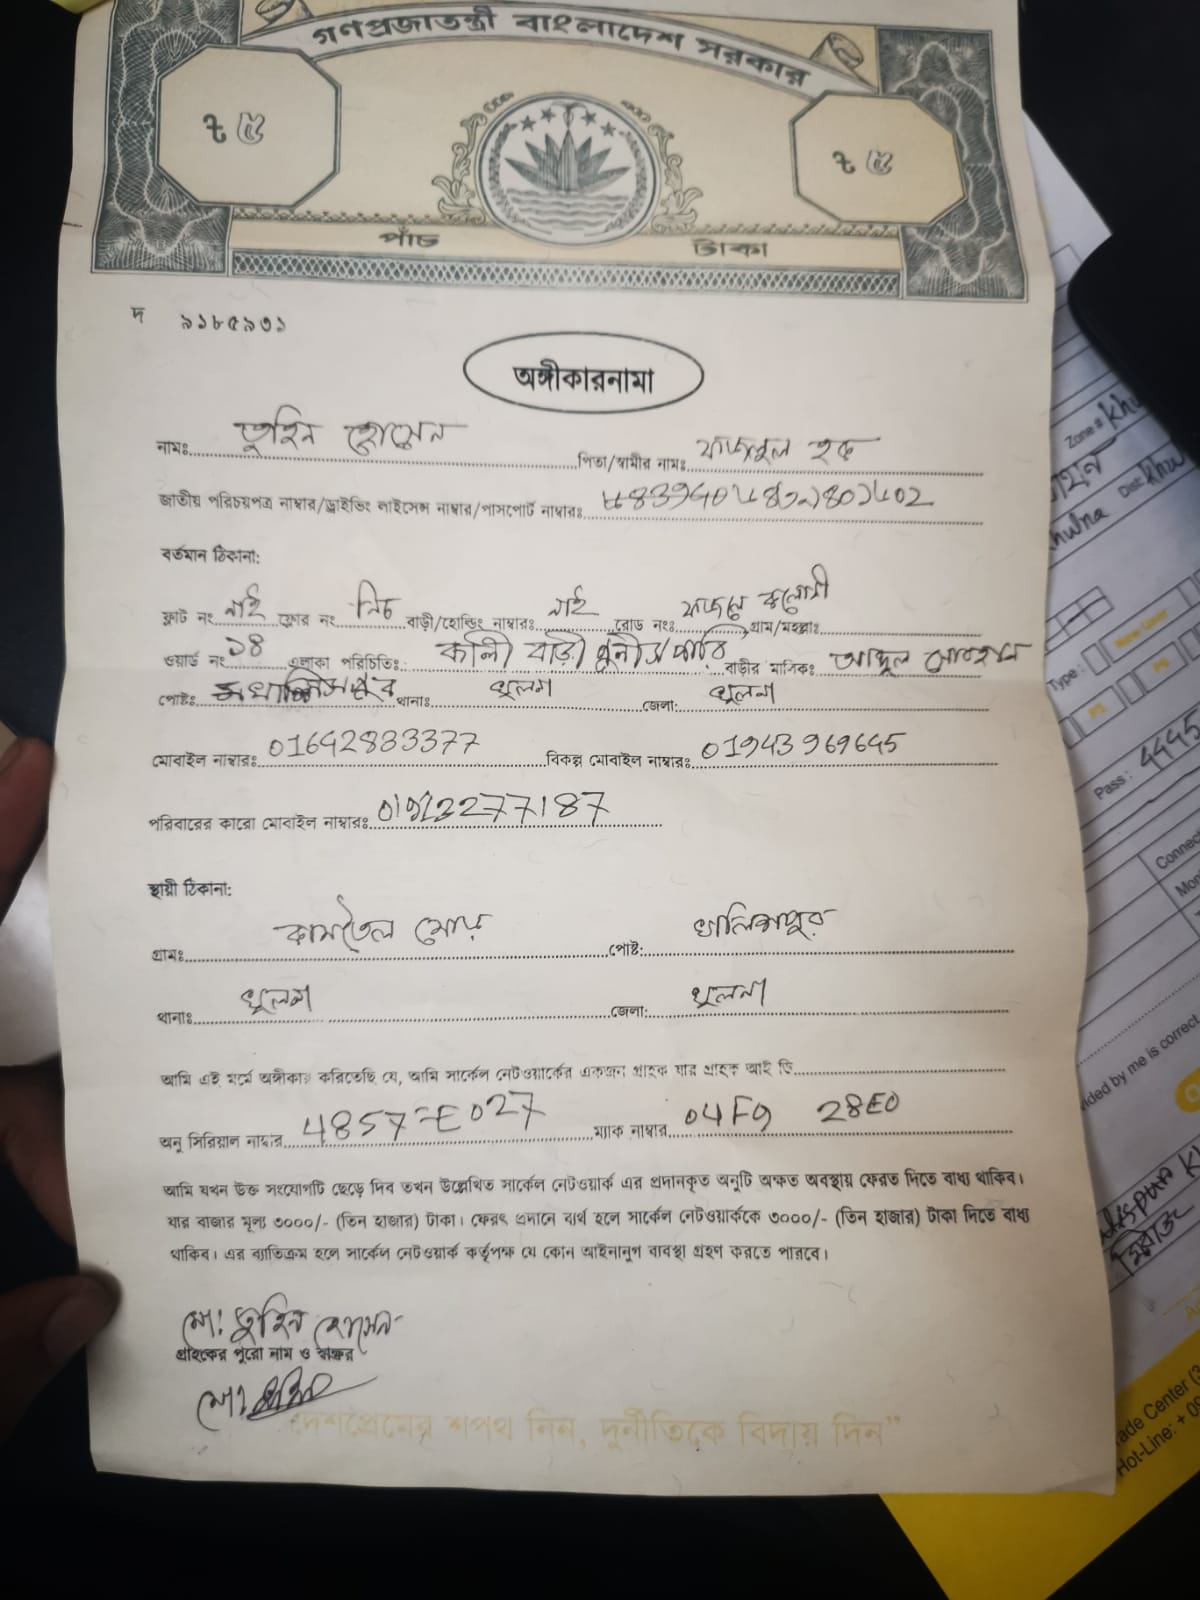 গণপ্রজাতন্ত্রী বাংলাদেশ সরকার
৳ ৫ ৳ ৫
পাঁচ টাকা
দ ৯১৮৫৯৩১
অঙ্গীকারনামা
নামঃ তুহিন হোসেন পিতা/স্বামীর নামঃ ফজলুল হক
জাতীয় পরিচয়পত্র নাম্বার/ড্রাইভিং লাইসেন্স নাম্বার/পাসপোর্ট নাম্বারঃ
বর্তমান ঠিকানা:
ফ্লাট নং নাই ফ্লোর নং নিচ বাড়ী/হোল্ডিং নাম্বারঃ নাই রোড নংঃ গ্রাম/মহল্লাঃ
ওয়ার্ড নং ১৪ এলাকা পরিচিতি: কালী বাড়ী বাড়ীর মালিকঃ আব্দুল
পোষ্টঃ থানাঃ খুলনা জেলা: খুলনা
মোবাইল নাম্বারঃ 01642883377 বিকল্প মোবাইল নাম্বারঃ 01943969645
পরিবারের কারো মোবাইল নাম্বারঃ
স্থায়ী ঠিকানা:
গ্রামঃ মোড় পোষ্ট: খালিশপুর
থানাঃ খুলনা জেলা: খুলনা
আমি এই মর্মে অঙ্গীকার করিতেছি যে, আমি সার্কেল নেটওয়ার্কের একজন গ্রাহক যার গ্রাহক আই ডি
অনু সিরিয়াল নাম্বার ম্যাক নাম্বার 04F9 28E0
আমি যখন উক্ত সংযোগটি ছেড়ে দিব তখন উল্লেখিত সার্কেল নেটওয়ার্ক এর প্রদানকৃত অনুটি অক্ষত অবস্থায় ফেরত দিতে বাধ্য থাকিব।
যার বাজার মূল্য ৩০০০/- (তিন হাজার) টাকা। ফেরৎ প্রদানে ব্যর্থ হলে সার্কেল নেটওয়ার্ককে ৩০০০/- (তিন হাজার) টাকা দিতে বাধ্য
থাকিব। এর ব্যতিক্রম হলে সার্কেল নেটওয়ার্ক কর্তৃপক্ষ যে কোন আইনানুগ ব্যবস্থা গ্রহণ করতে পারবে।
মো: তুহিন হোসেন
গ্রাহকের পুরো নাম ও স্বাক্ষর
মো:
"দেশপ্রেমের শপথ নিন, দুর্নীতিকে বিদায় দিন"
Zone #
Dist:
Type :
Pass: 4445
Connec
ided by me is correct
ade Center (3
Hot-Line: + 09